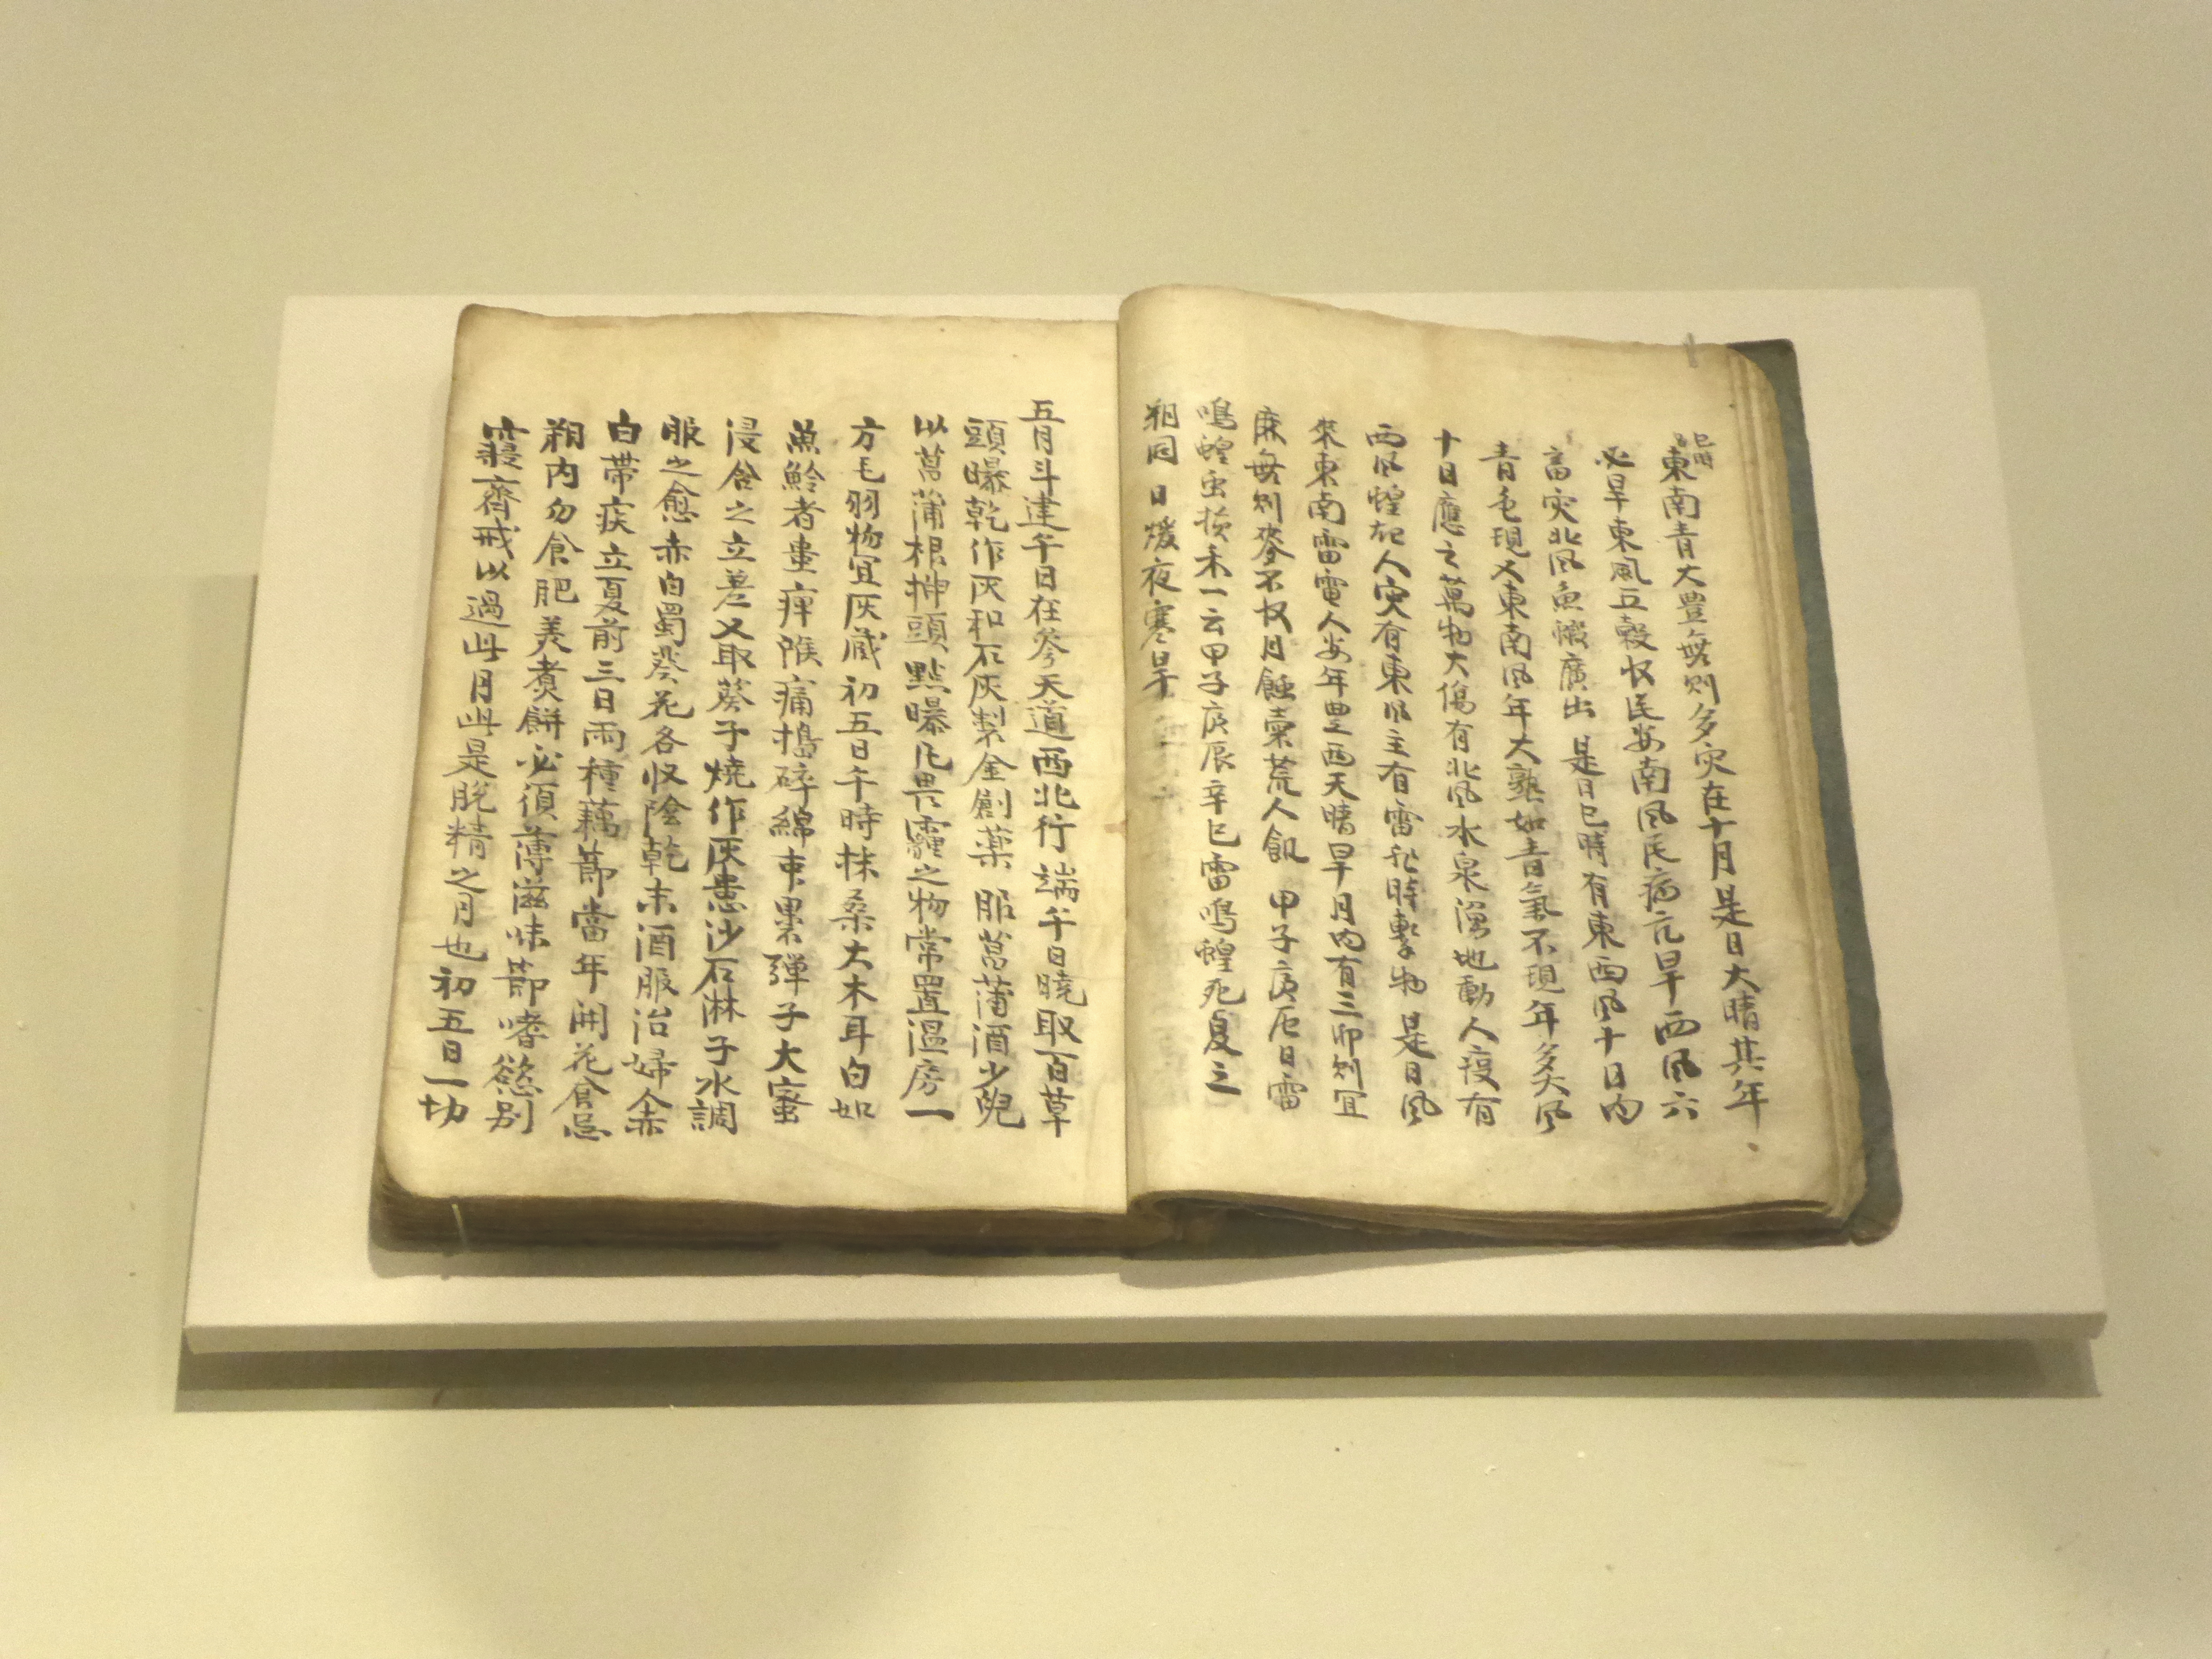 巳時
東南青大豊無則多灾在十月是日大晴其年
必旱東風五穀收民安南風民病亢旱西風六
畜灾北風魚 廣出 是日巳時有東西風十日內
青色現又東南風年大熟如青氣不現年多大風
十日應之萬物大傷有北風水泉湧地動人疫有
西風蝗起人灾有東風主有雷非時擊物 是日風
來東南雷電人安年豊西天晴旱月內有三卯則宜
麻無則麥不收月蝕 荒人飢 甲子庚辰日雷
鳴蝗虫 禾一云甲子庚辰辛巳雷鳴蝗死夏之
朔同 日煖夜寒旱
五月斗建午日在參天道西北行 端午日曉取百草
頭曝乾作灰和石灰製金創藥 服菖蒲酒少
以菖蒲根 頭點曝凡畏霾之物常置溫房一
方毛羽物宜灰藏 初五日午時抹桑大木耳白如
魚鮯者患痺喉痛搗碎綿束裹彈子大蜜
浸含之立差又取葵子燒作灰患沙石淋子水調
服之愈赤白蜀葵花各收陰乾末酒服治婦人赤
白帶疾立夏前三日雨種藕節當年開花食忌
朔內勿食肥羙煮餠必須薄滋味節嗜慾別
寢齊戒以過此月此是脫精之月也 初五日一切